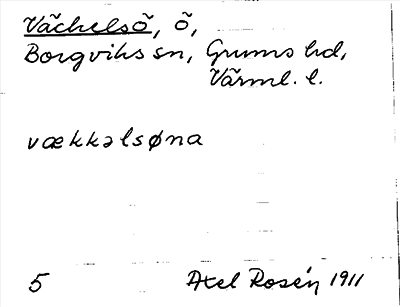 Väckelsö, ö,
Borgviks sn, Grums hd,
Värml. l.
vækkəlsøna
5 Axel Rosén 1911